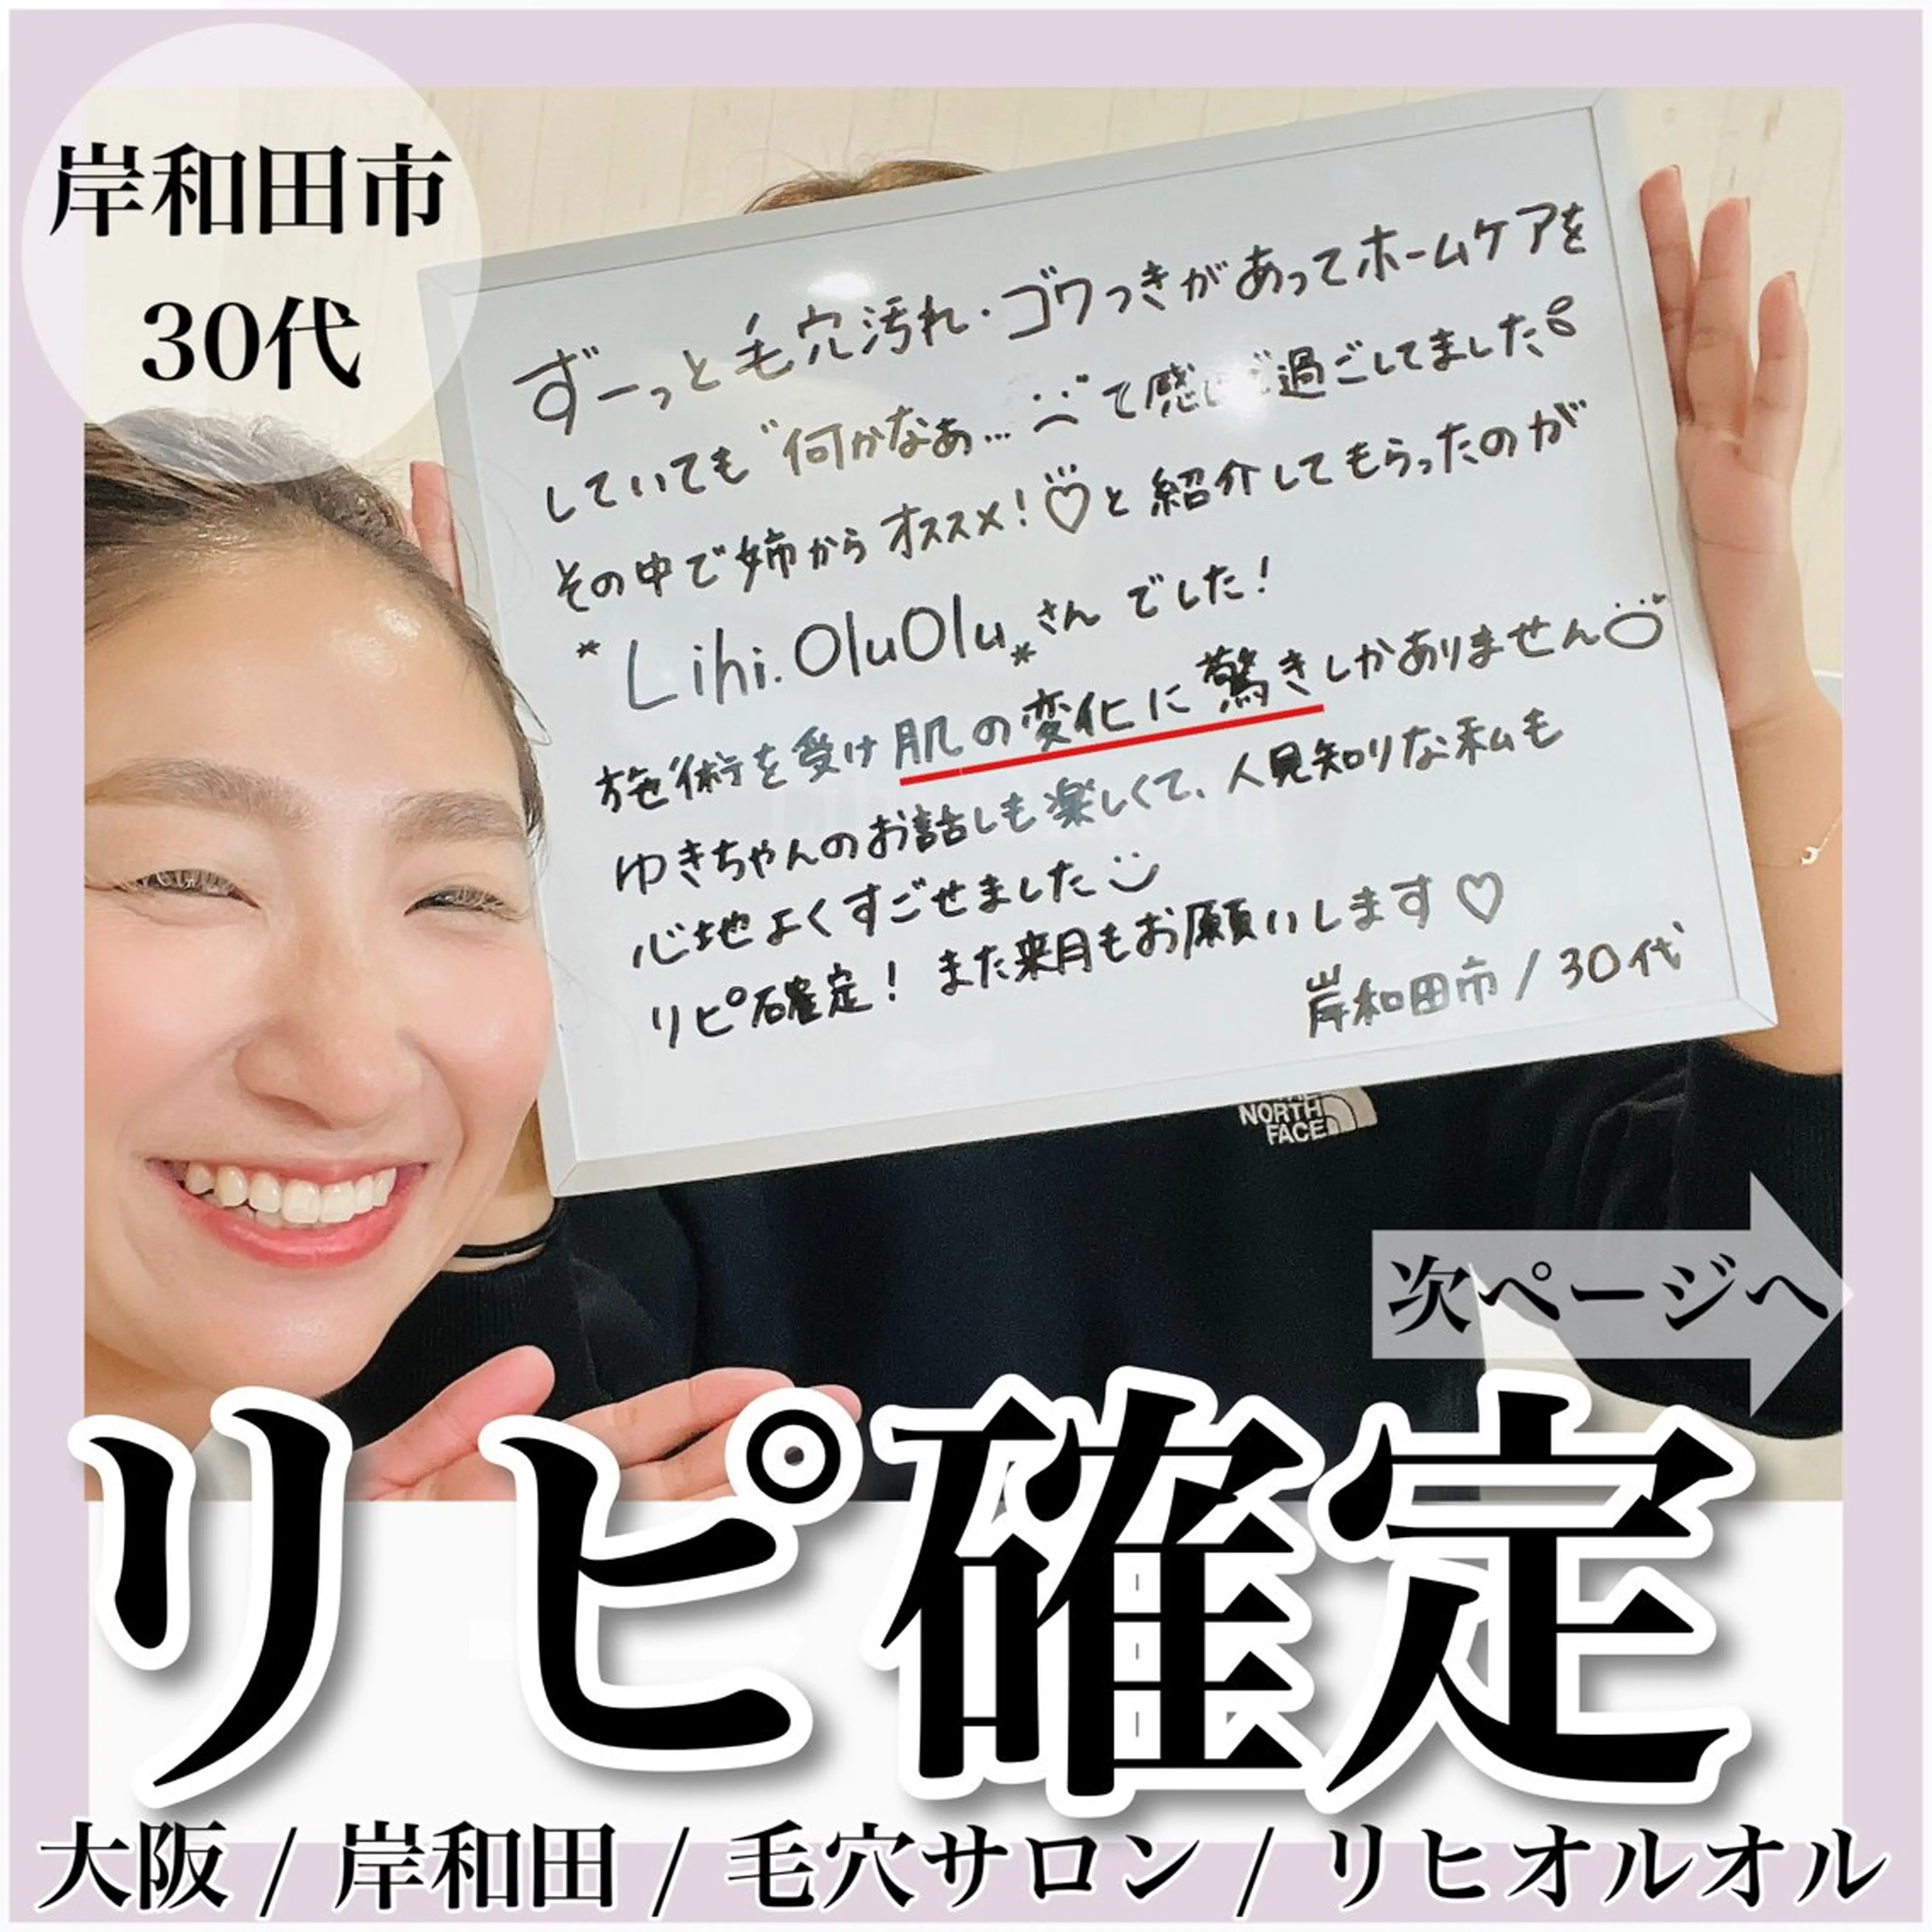 岸和田市
30代
ずーっと毛穴汚れ・ゴワつきがあってホームケアを
していても゛何かなぁ…゛て感じで過ごしてました
その中で姉からオススメ!♡と紹介してもらったのが
*Lihi.OluOlu*さんでした!
施術を受け肌の変化に驚きしかありません
ゆきちゃんのお話しも楽しくて、人見知りな私も
心地よくすごせました
リピ確定! また来月もお願いします♡
岸和田市/30代
THE
NORTH
FACE
次ページへ
リピ確定
大阪 / 岸和田 / 毛穴サロン / リヒオルオル